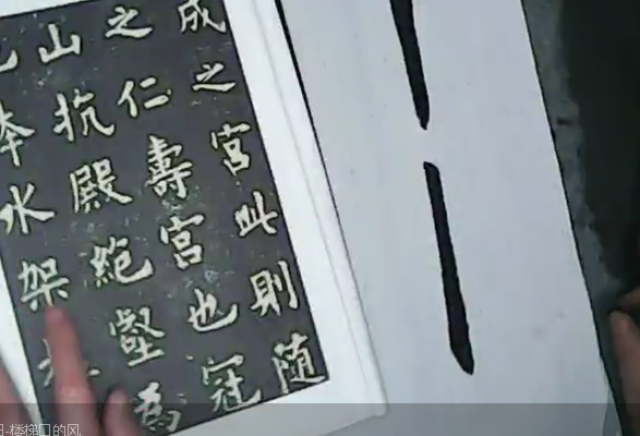 成之宮此則随
之仁壽宮也冠
山抗殿絶壑為
水架
楼梯口的风